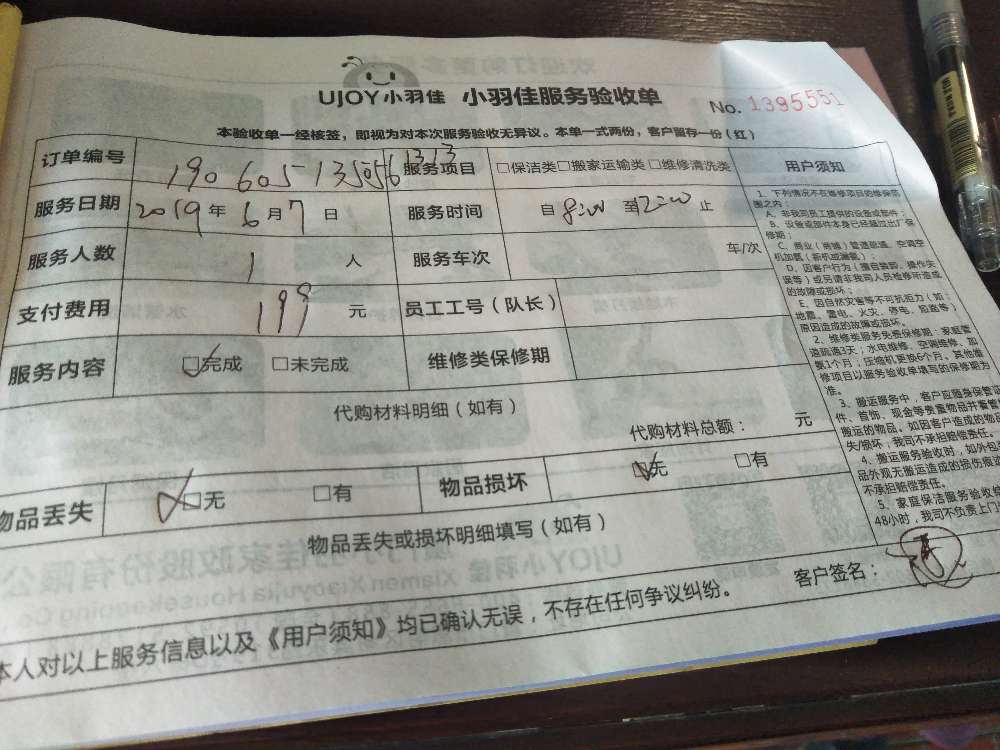 UJOY小羽佳 小羽佳服务验收单 No. 1395551
本验收单一经核签，即视为对本次服务验收无异议。本单一式两份，客户留存一份（红）
订单编号 190605135056 1313 服务项目 □保洁类□搬家运输类□维修清洗类
服务日期 2019年6月7日 服务时间 自8:00至2:00止
服务人数 1人 服务车次 车/次
支付费用 199元 员工工号（队长）
服务内容 □完成 □未完成 维修类保修期
代购材料明细（如有）
代购材料总额： 元
物品丢失 □无 □有 物品损坏 □无 □有
物品丢失或损坏明细填写（如有）
客户签名：
本人对以上服务信息以及《用户须知》均已确认无误，不存在任何争议纠纷。
用户须知
1、下列情况不在维修项目的维保范
围之内：
A、非我司员工提供的设备或部件；
B、设备或部件本身已经超过出厂保
修期；
C、商业（商铺）管道疏通、空调空
机加氨（新机或漏氨）；
D、因客户行为（擅自装卸、操作失
误等）或另请非我司人员检修所造成
的故障或损坏；
E、因自然灾害等不可抗拒力（如：
地震、雷电、火灾、停电、盗窃等）
原因造成的故障或损坏。
2、维修类服务免费保修期：家庭管
道疏通3天；水电维修、空调维修、加
氨1个月；压缩机更换6个月。其他维
修项目以服务验收单填写的保修期为
准。
3、搬运服务中，客户应随身保管证
件、首饰、现金等贵重物品并看管
搬运的物品。如因客户造成的物品
失/损坏，我司不承担赔偿责任。
4、搬运服务验收时，如外包
品外观无搬运造成的损伤痕迹
不承担赔偿责任。
5、家庭保洁服务验收
48小时，我司不负责上门